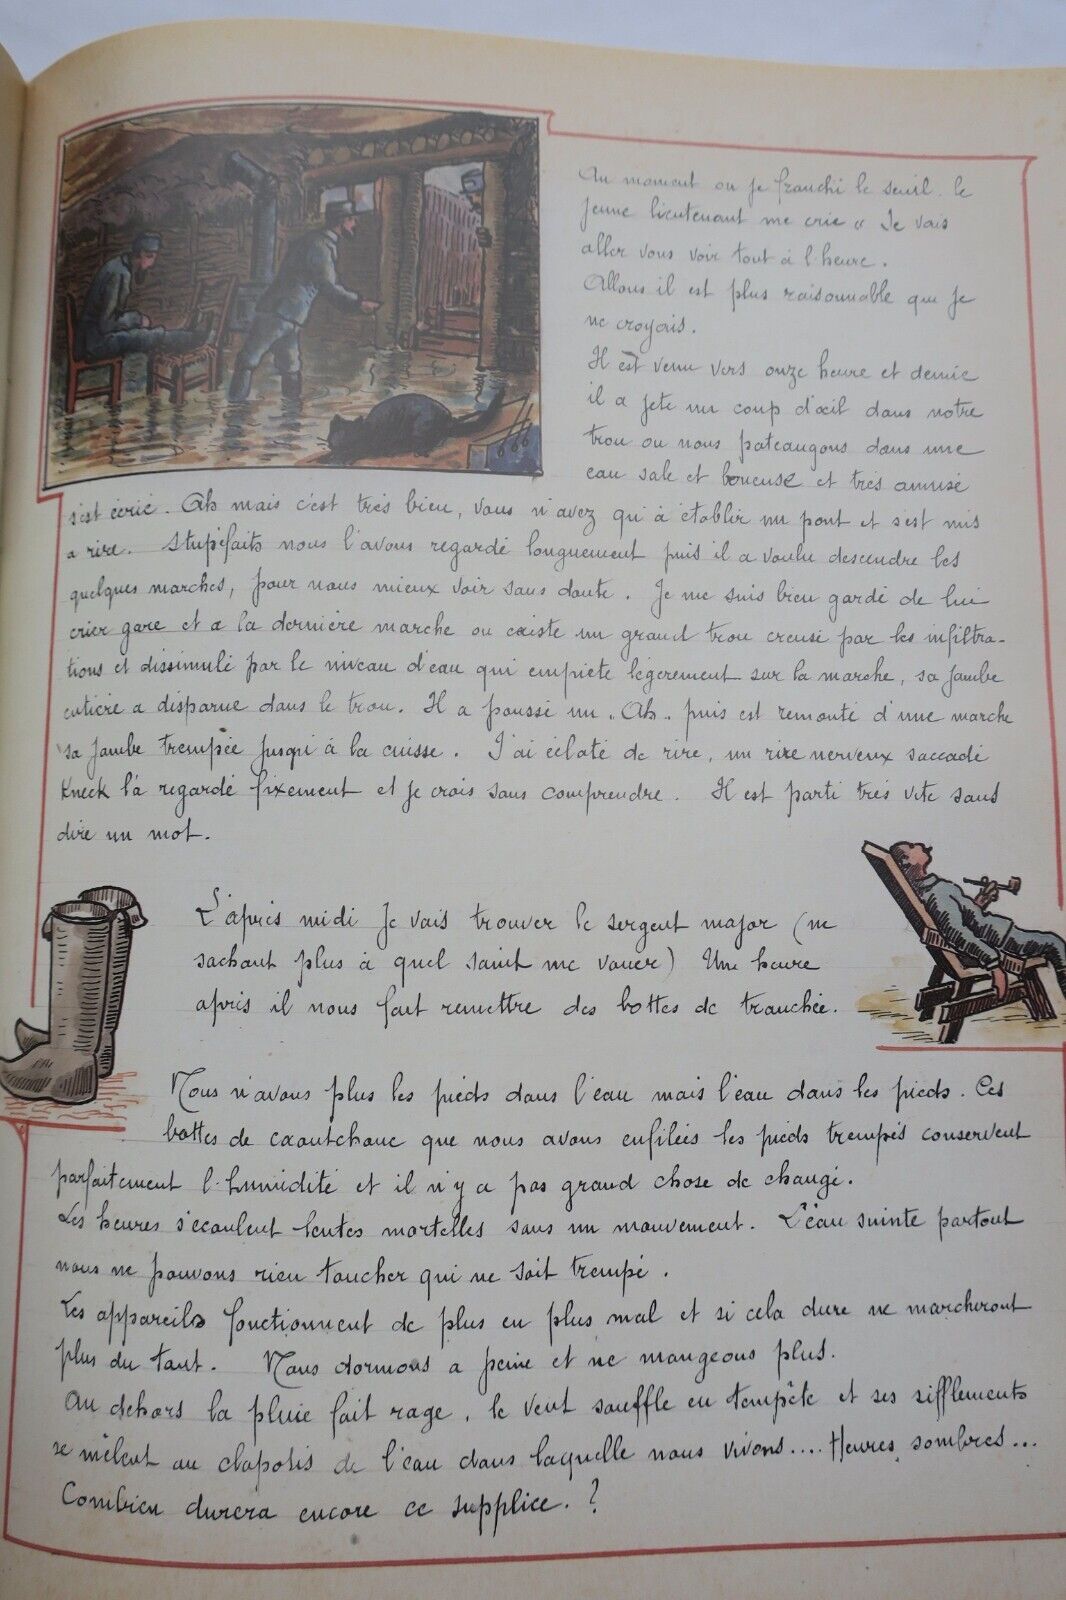 Au moment ou je franchi le seuil. le
jeune lieutenant me crie « Je vais
aller vous voir tout à l'heure.
Allons il est plus raisonnable que je
ne croyais.
Il est venu vers onze heure et demie
il a jeté un coup d'œil dans notre
trou ou nous pateaugons dans une
eau sale et boueuse et très amusé
s'est écrié. Ah mais c'est très bien, vous n'avez qu'à établir un pont et s'est mis
a rire. Stupéfaits nous l'avons regardé longuement puis il a voulu descendre les
quelques marches, pour nous mieux voir sans doute. Je me suis bien gardé de lui
crier gare et a la dernière marche ou existe un grand trou creusé par les infiltra-
tions et dissimulé par le niveau d'eau qui empiète légèrement sur la marche, sa jambe
entière a disparue dans le trou. Il a poussé un "Ah" puis est remonté d'une marche
sa jambe trempée jusqu'à la cuisse. J'ai éclaté de rire, un rire nerveux saccadé
Kneck l'a regardé fixement et je crois sans comprendre. Il est parti très vite sans
dire un mot.
L'après midi je vais trouver le sergent major (ne
sachant plus à quel saint me vouer) Une heure
après il nous fait remettre des bottes de tranchée.
Nous n'avons plus les pieds dans l'eau mais l'eau dans les pieds. Ces
bottes de caoutchouc que nous avons enfilées les pieds trempés conservent
parfaitement l'humidité et il n'y a pas grand chose de changé.
Les heures s'écoulent lentes mortelles sans un mouvement. L'eau suinte partout
nous ne pouvons rien toucher qui ne soit trempé.
Les appareils fonctionnent de plus en plus mal et si cela dure ne marcheront
plus du tout. Nous dormons a peine et ne mangeons plus.
Au dehors la pluie fait rage, le vent souffle en tempête et ses sifflements
se mêlent au clapotis de l'eau dans laquelle nous vivons.... Heures sombres...
Combien durera encore ce supplice. ?